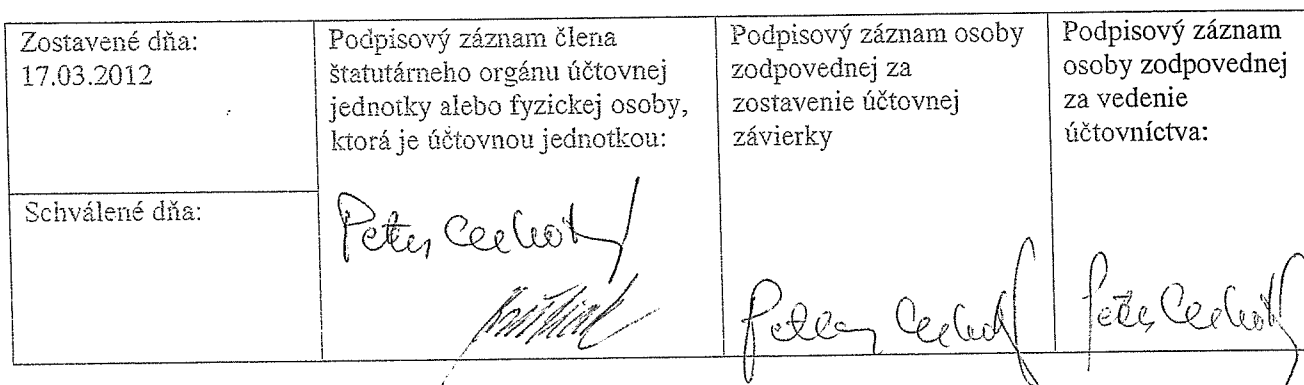 Zostavené dňa:
17.03.2012
Podpisový záznam člena
štatutárneho orgánu účtovnej
jednotky alebo fyzickej osoby,
ktorá je účtovnou jednotkou:
Podpisový záznam osoby
zodpovednej za
zostavenie účtovnej
závierky
Podpisový záznam
osoby zodpovednej
za vedenie
účtovníctva:
Schválené dňa:
Peter
Peter
Peter